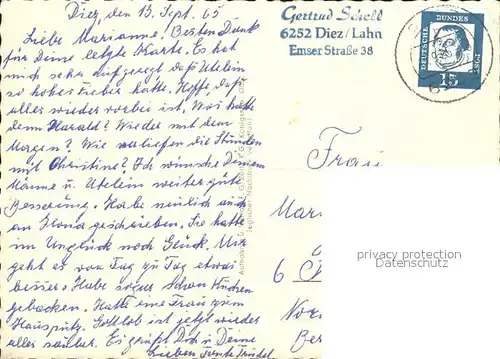 Diez, den 13. Sept. 65
Liebe Marianne! Besten Dank
für Deine letzte Karte. Es hat
mich sehr aufgeregt daß Utelein
so hohes Fieber hatte. Hoffe, daß
alles wieder vorbei ist. Was hatte
denn Harald? Wieder mit dem
Magen? Wie verliefen die Stunden
mit Christine? Ich wünsche Deinem
Manne u. Utelein weiter gute
Besserung. Habe neulich auch
an Ilona geschrieben. Sie hatte
im Unglück noch Glück. Mir
geht es von Tag zu Tag etwas
besser. Habe sogar schon Kuchen
gebacken. Hatte eine Frau zum
Hausputz. Gottlob ist jetzt wieder
alles sauber. Es grüßt Dich u. Deine
Lieben Tante Trudel
Gertrud Scholl
6252 Diez/Lahn
Emser Straße 38
DEUTSCHE BUNDESPOST
15
Frau
Mari
6
Ber
privacy protection
Datenschutz